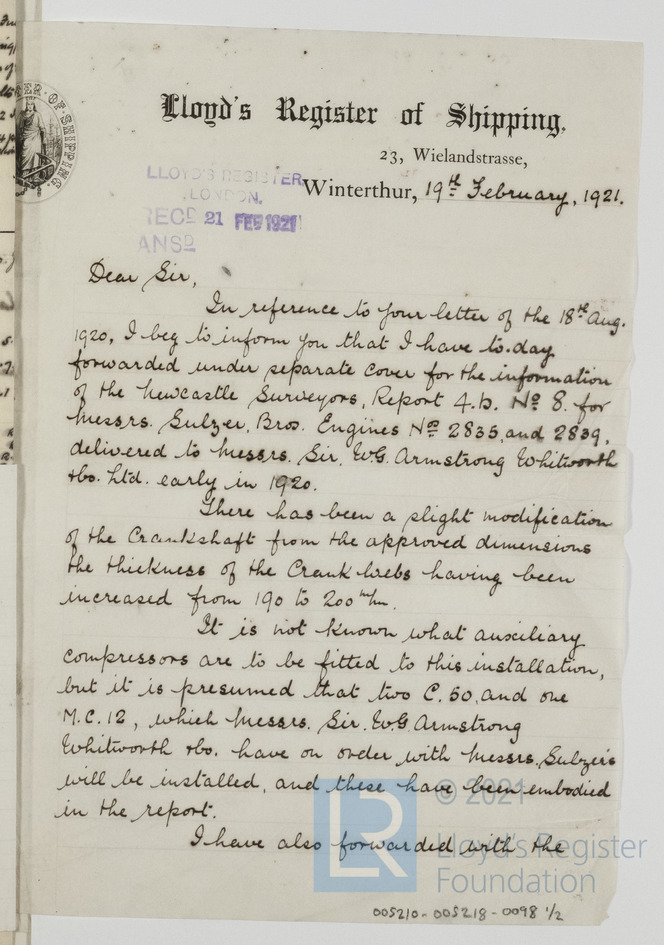 Lloyd's Register of Shipping,
23, Wielandstrasse,
Winterthur, 19th February, 1921.
LLOYD'S REGISTER,
LONDON.
RECD 21 FEB 1921
ANSD
Dear Sir,
In reference to your letter of the 18th Aug.
1920, I beg to inform you that I have to-day
forwarded under separate cover for the information
of the Newcastle Surveyors, Report 4.b. No 8. for
Messrs. Sulzer, Bros. Engines Nos 2835, and 2839,
delivered to Messrs. Sir. W.G. Armstrong Whitworth
&Co. Ltd. early in 1920.
There has been a slight modification
of the Crankshaft from the approved dimensions
the thickness of the Crank Webs having been
increased from 190 to 200 m/m.
It is not known what auxiliary
compressors are to be fitted to this installation,
but it is presumed that two C. 50, and one
M.C. 12, which Messrs. Sir. W.G. Armstrong
Whitworth &Co. have on order with Messrs. Sulzer's
will be installed, and these have been embodied
in the report.
I have also forwarded with the
© 2021
LR
Lloyd's Register
Foundation
005210-005218-0098 1/2